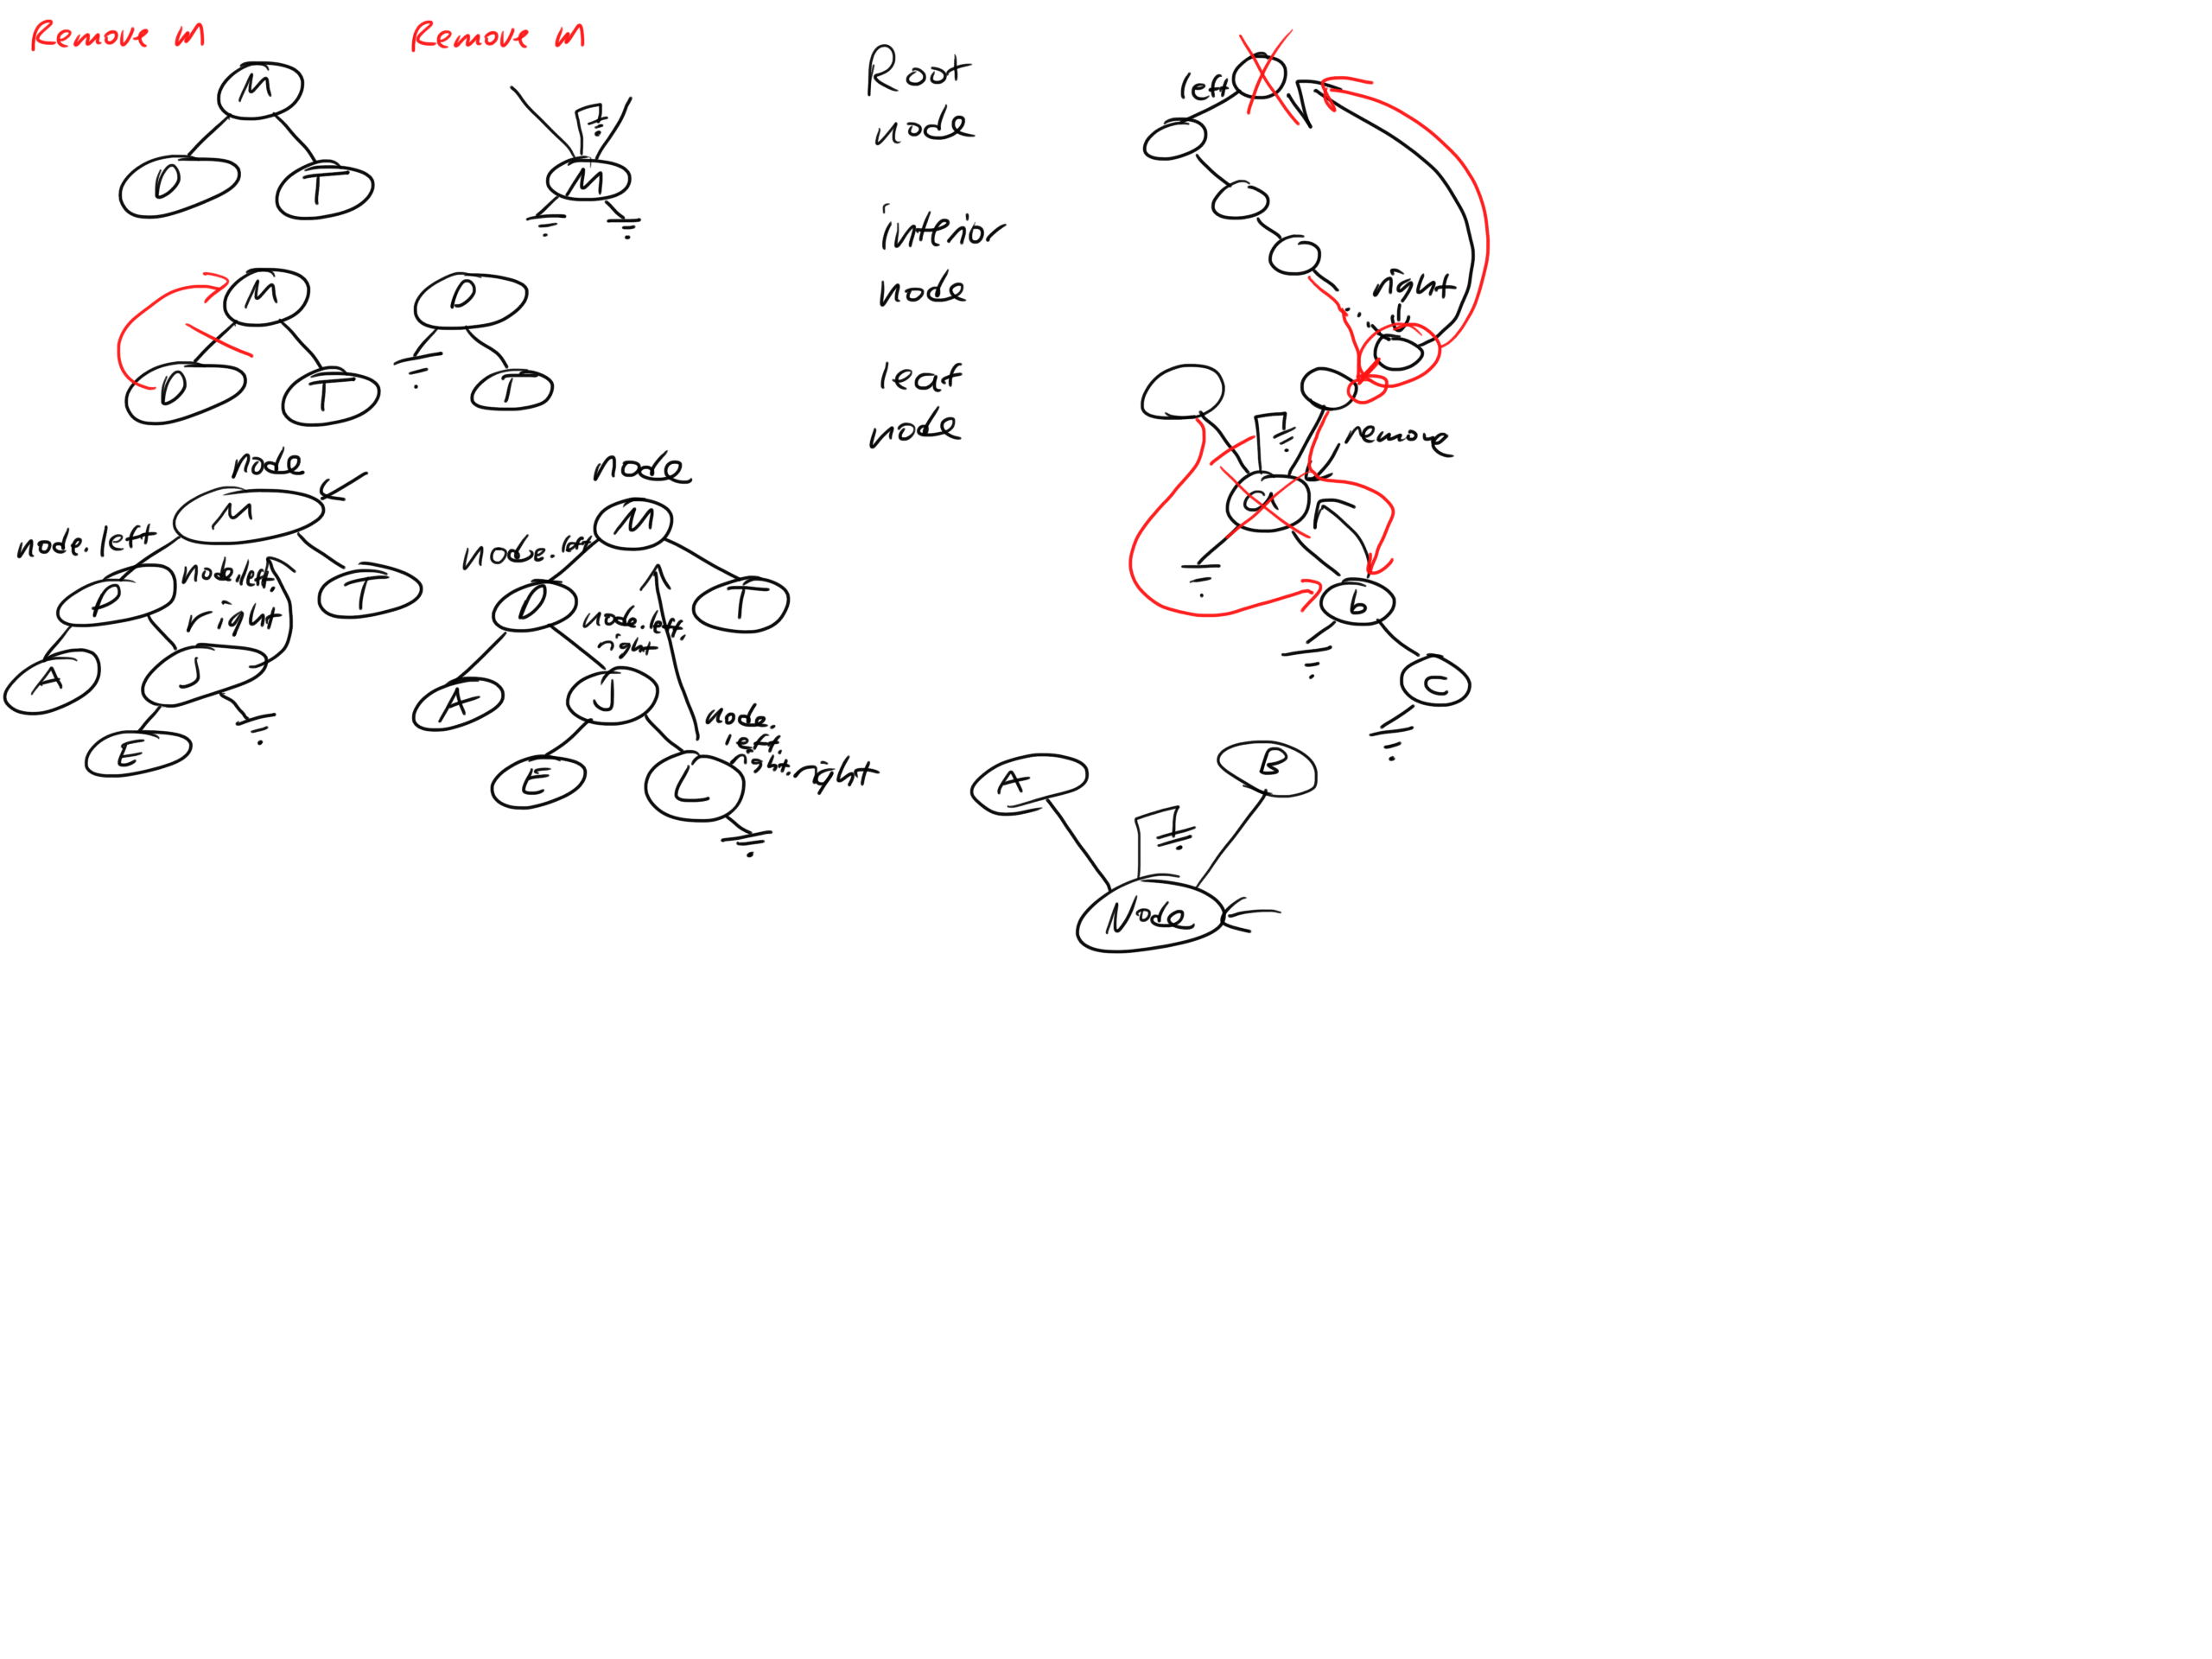 Remove M
M
D T
M
D T
D
T
node
M
node.left
D
node.left.
right
T
A J
E
Remove M
M
node
M
node.left
D
node.left.
right
T
A J
node.
left.
right.right
E L
Root
node
interior
node
leaf
node
left
right
remove
a
b
c
A B
Node